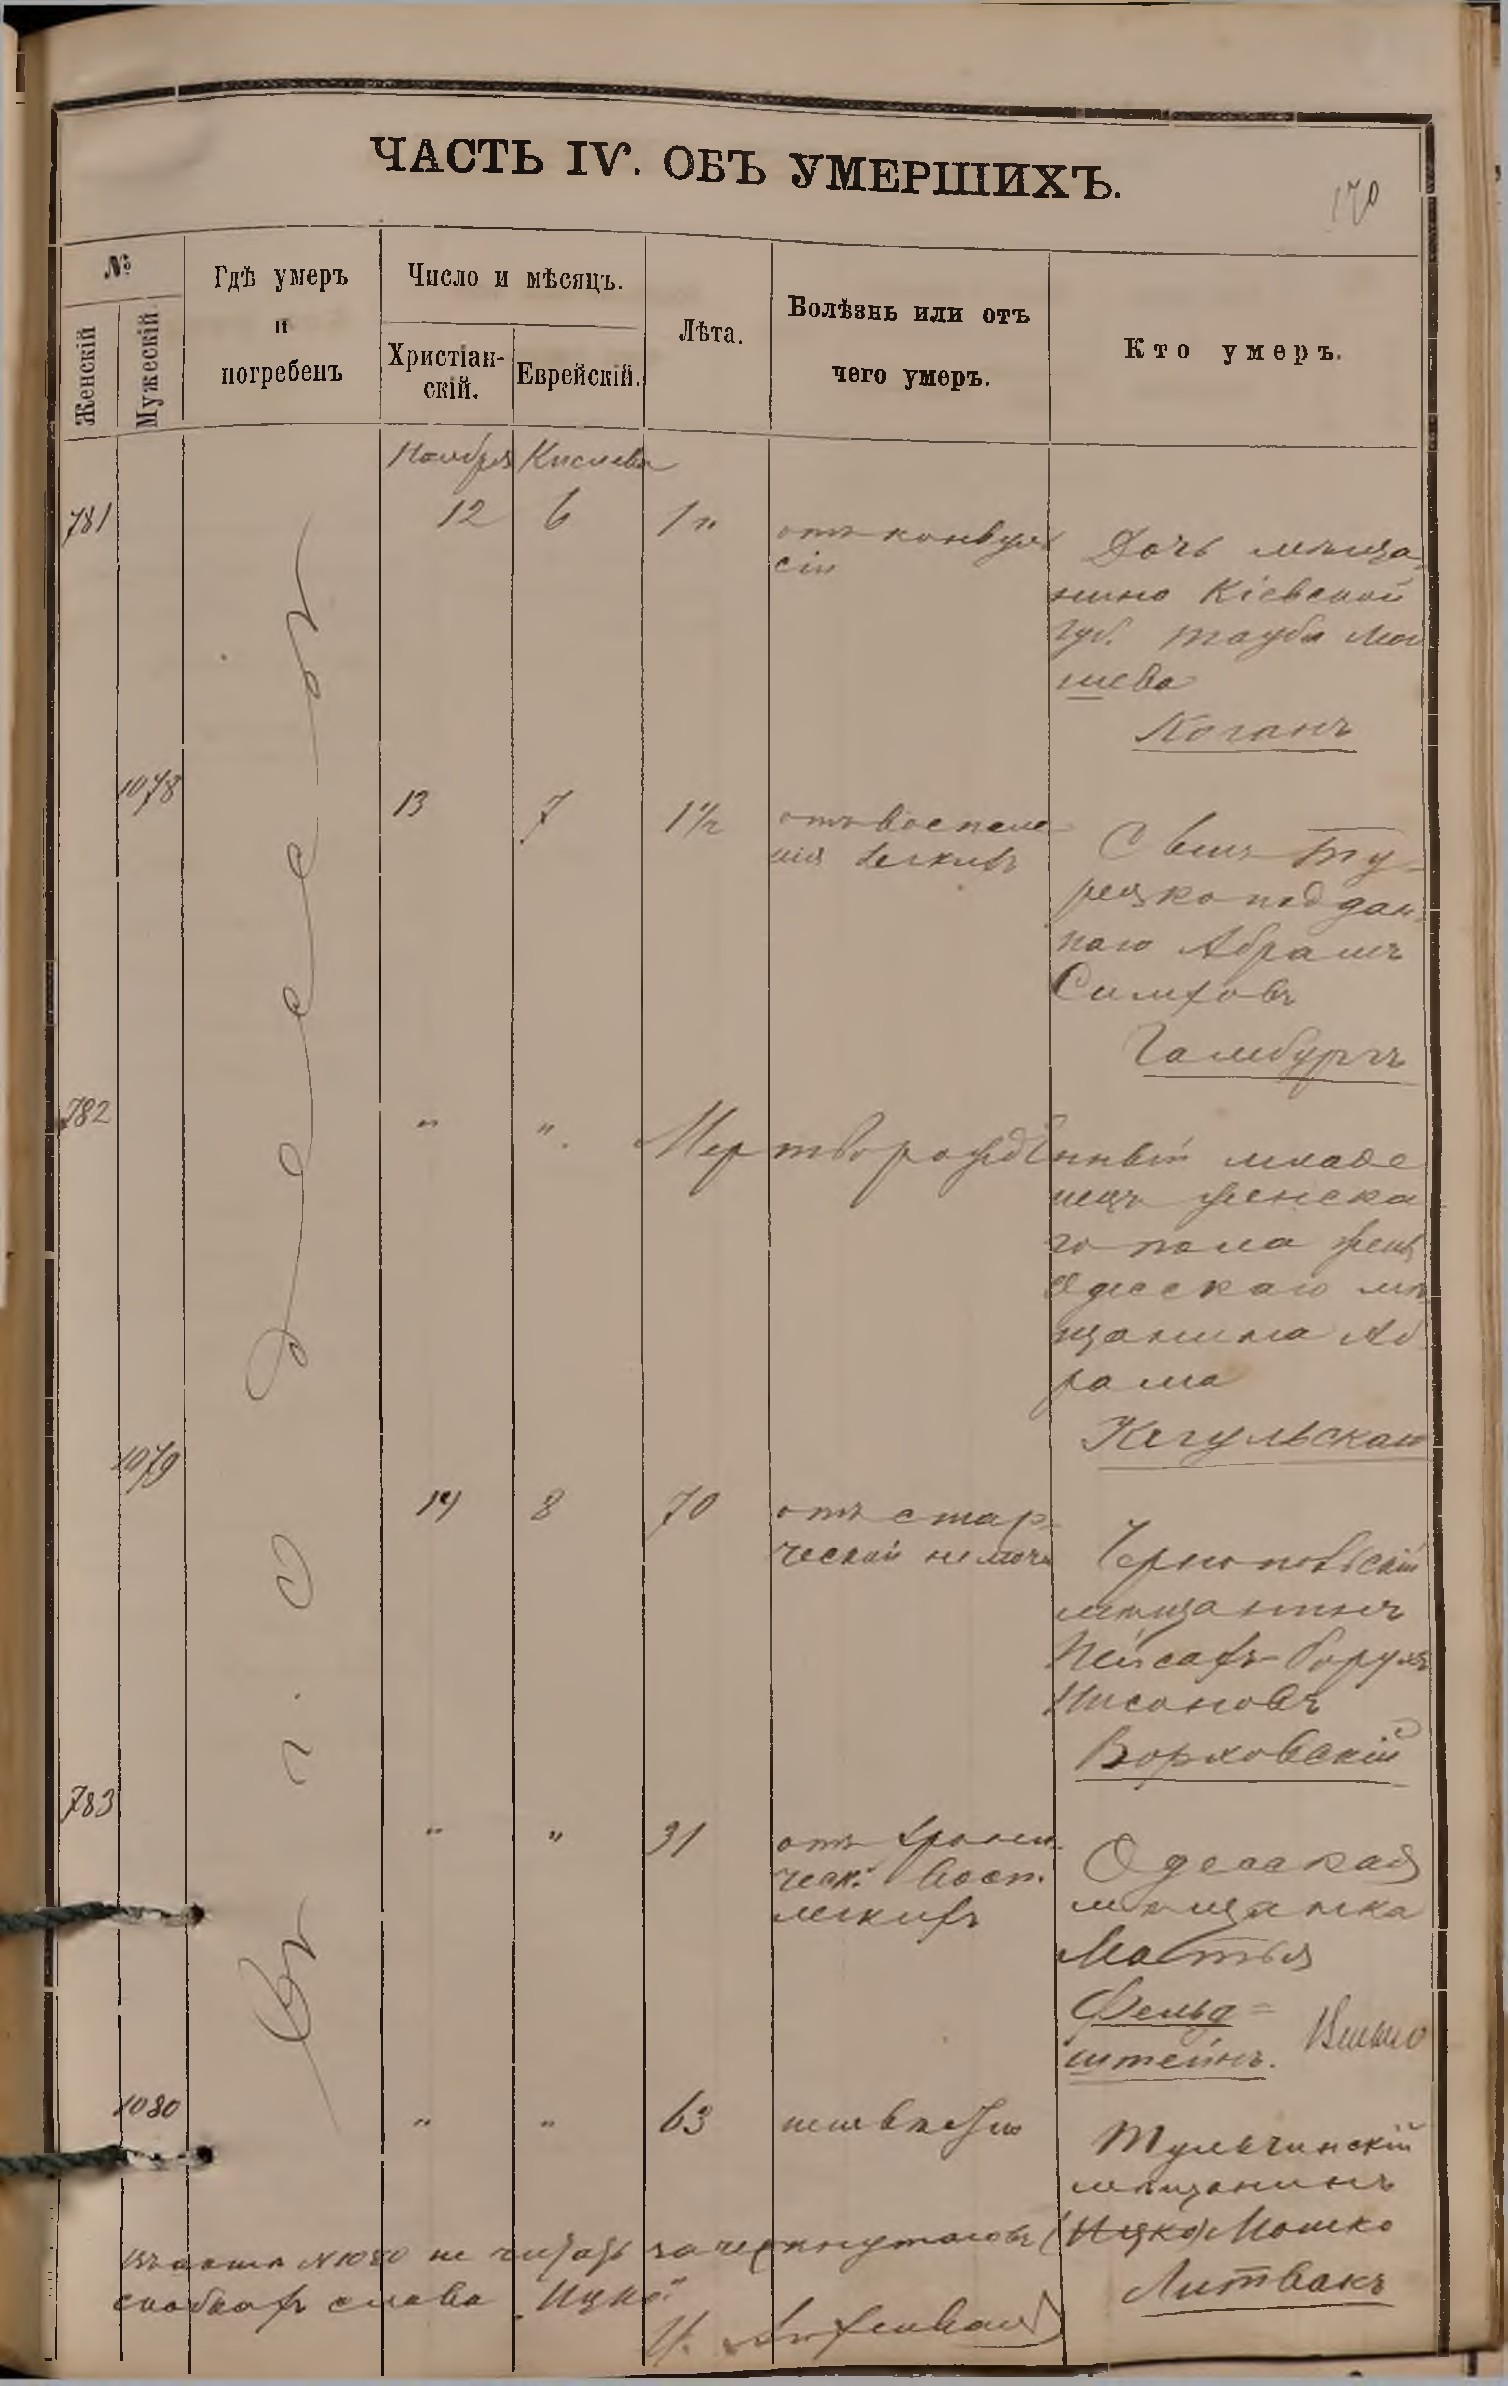 ЧАСТЬ IV. ОБЪ УМЕРШИХЪ.
170
№
Женскій
Мужескій
Гдѣ умеръ
и
погребенъ
Число и мѣсяцъ.
Христіан-
скій.
Еврейскій.
Лѣта.
Болѣзнь или отъ
чего умеръ.
Кто умеръ.
Ноября Кислева
Въ г. Одессѣ
781 12 6 1
отъ конвуль
сіи
Дочь мѣща-
нина Кіевской
губ. Тауба Мо
шева
Коганъ
1078 13 7 1 1/2
отъ воспале-
нія легкихъ
Сынъ Ту-
рецкоподдан-
наго Абрамъ
Симховъ
Гамбургъ
782 " "
Мертворожденный младе
нецъ женска
го пола
Одесскаго мѣ
щанина Аб
рама
Кагульскаго
1079 14 8 70
отъ стар-
ческой немочи
мѣщанинъ
Пейсахъ-Борухъ
Нисоновъ
Ворховскій
783 " " 31
отъ хрони-
ческ. восп.
легкихъ
Одесская
мѣщанка
Матья
Фельд=
штейнъ.
1080 " " 63
Тульчинскій
мѣщанинъ
(Ицко) Мошко
Литвакъ
Въ актѣ №1080 не читать зачеркнутаго въ
скобкахъ слова "Ицко".